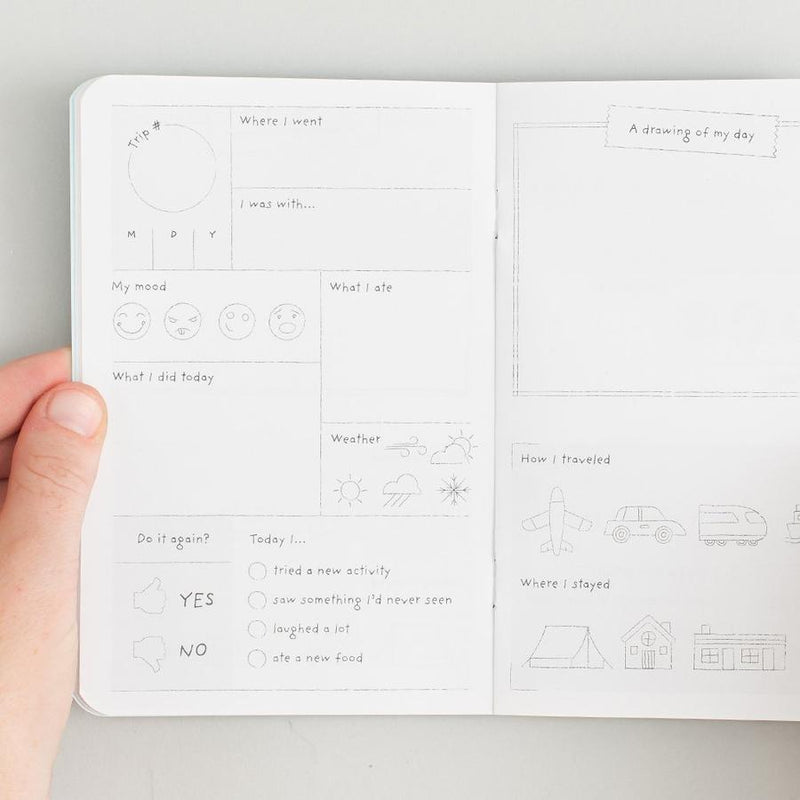 Trip #
M D Y
Where I went
I was with...
My mood
What I ate
What I did today
Weather
Do it again?
YES
NO
Today I...
tried a new activity
saw something I'd never seen
laughed a lot
ate a new food
A drawing of my day
How I traveled
Where I stayed